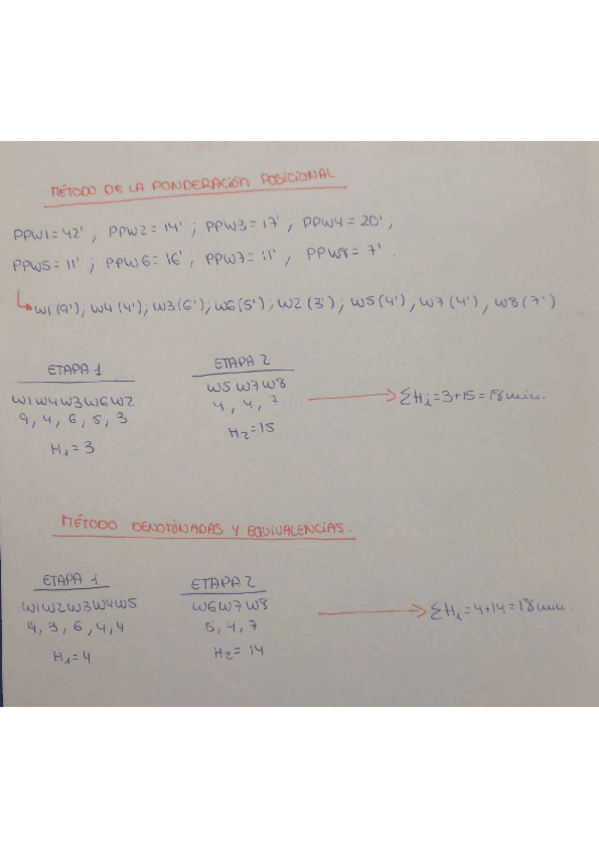 MÉTODO DE LA PONDERACIÓN POSICIONAL
PPW1=42' ; PPW2=14' ; PPW3=17' ; PPW4=20' ;
PPW5=11' ; PPW6=16' ; PPW7=11' , PPW8=7'
W1(9'), W4(4'); W3(6'); W6(5'); W2(3'); W5(4'), W7(4'), W8(7')
ETAPA 1
W1W4W3W6W2
9, 4, 6, 5, 3
H1=3
ETAPA 2
W5W7W8
4, 4, 7
H2=15
ΣHi=3+15=18min.
MÉTODO DENOTINADAS Y EQUIVALENCIAS.
ETAPA 1
W1W2W3W4W5
9, 3, 6, 4, 4
H1=4
ETAPA 2
W6W7W8
5, 4, 7
H2=14
ΣHi=4+14=18min.